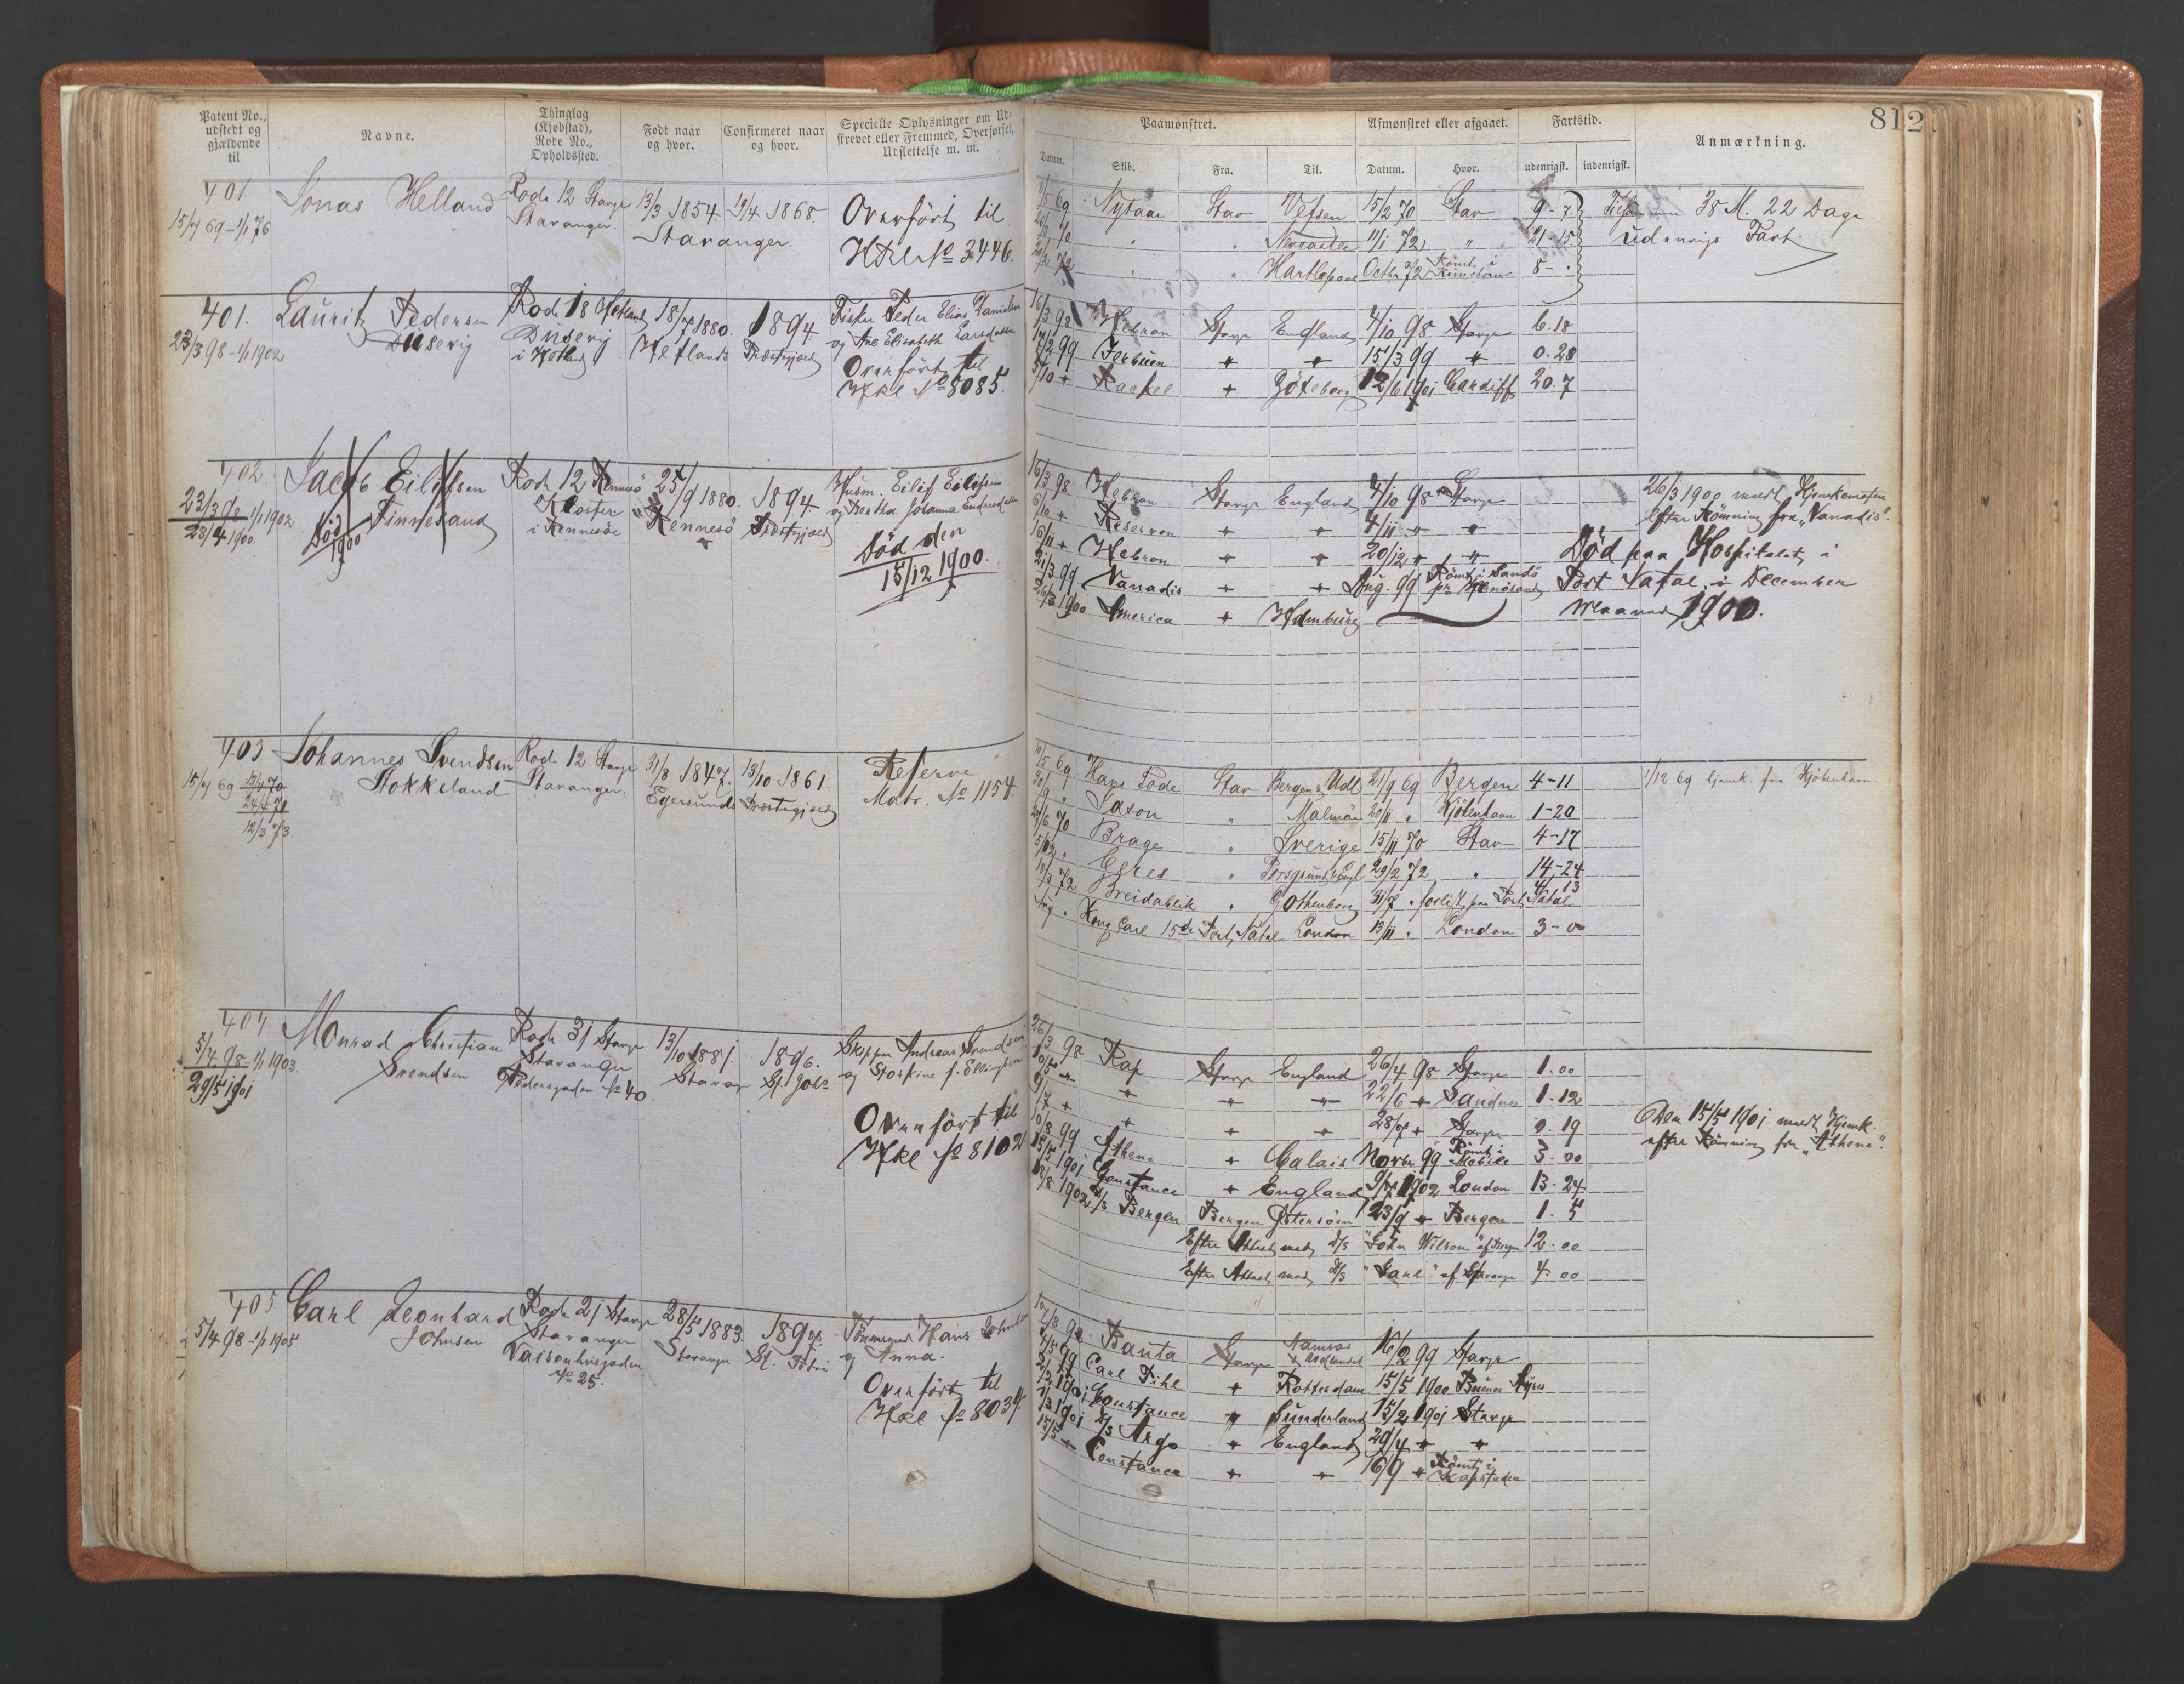 812
Patent No., udstedt og gjældende til
Navne.
Thinglag (Kjøbstad), Rode No., Opholdssted.
Født naar og hvor.
Confirmeret naar og hvor.
Specielle Oplysninger om Udskrevet eller Fremmed, Overførsel, Udslettelse m. m.
Paamønstret.
Afmønstret eller afgaaet.
Fartstid.
Anmærkning.
Datum.
Skib.
Fra.
Til.
Datum.
Hvor.
udenrigsk.
indenrigsk.
401.
15/4 69 - 1/1 76
Jonas Helland
Rode 12 Stavgr
Stavanger.
13/3 1854.
Stavanger.
19/4 1868.
Overført til
Hkl No 3446.
69 Nysaan Stav Vefsen 15/2 70 Stav 9-7
11/1 72 " 21-15
Hartlepool Octbr 72 Rømt i 8-.
38 M. 22 Dage
udenrigs Fart.
401.
23/3 98 - 1/1 1902
Lauritz Pedersen
Dusevig
Rode 18 Hetland
Dusevig
i Hetland
18/7 1880.
Hetlands
1894
Præstegjæld
Fisker Peder Elias Danielsen
og Ane Elisabeth Larsdatter
Overført til
Hkl No 8085.
16/3 98 Hebron Stavgr England 4/10 98 Stavgr 6.18
17/2 99 " " 15/3 99 " 0.28
5/10 " Rachel " Göteborg 12/6 1901 Cardiff 20.7
402.
23/3 98 - 1/1 1902
23/4 1900.
Jacob Eilifsen
Finnesand
Død
1900
Rode 12 Rennesø
Kloster
i Rennesøe
25/9 1880.
Rennesö
1894
Præstegjæld
Husm. Eilif Eilifsen
og Bertha Johanna Endresdatter
Død den
15/12 1900.
16/3 98 Hebron Stavgr England 4/10 98 Stavgr
6/10 " Reserven " " 4/11 " "
16/11 " Hebron " " 20/12 " "
21/3 99 Vanadis " " Aug. 99 Rømt i Sandö pr Hernösand
26/3 1900 America " Hamburg
26/3 1900 meldt Hjemkomsten
efter Rømning fra "Vanadis".
Død paa Hospitalet i
Port Natal i December
Maaned 1900.
403
15/4 69
13/4 70
24/4 71
12/3 73.
Johannes Svendsen
Stokkeland
Rode 12 Stavgr
Stavanger.
31/8 1847.
Egersunds
13/10 1861.
Præstegjæld
Reserve
Matr. No 1154.
10/5 69 Hans Tode Stav Bergen & Udl 21/9 69 Bergen 4-11
30/9 " Saxon " Malmöe 20/11 " Kjøbenhavn 1-20
70 Brage " Sverige 15/11 70 Stav 4-17
Ceres " Porsgrund & Engl 29/2 72 " 14-24
18/3 72 Breidablik " Gothenborg 31/7 " forlist paa Port Natal 4-13
Aug " Kong Carl 15de Port Natal London 13/11 " London 3-0
1/12 69 hjemk. fra Kjøbenhavn
404.
5/4 98 - 1/1 1903.
29/5 1901
Monrad Christian
Svendsen
Rode 31 Stavgr
Stavanger
Pedersgaden No 40.
13/10 1881.
Stavgr
1896.
St. Johs
Skipper Andreas Svendsen
og Storkine f. Ellingsen
Overført til
Hkl No 8102
26/3 98 Rap Stavgr England 26/4 98 Stavgr 1.00
10/5 " " " " 22/6 " Sandnes 1.12
" " " 28/7 " Stavgr 0.19
10/8 99 Athene " Calais Novbr 99 Rømt i Mobile 3.00
15/5 1901 Constance " England 9/7 1902 London 13.24
18/8 1902 D/S Bergen Bergen Østersøen 23/9 " Bergen 1.5
Efter Attest med D/S "John Wilson" af Bergen 12.00
Efter Attest med D/S "Jarl" af Stavanger 4.00
Den 15/5 1901 meldt Hjemk.
efter Rømning fra "Athene".
405.
5/4 98 - 1/1 1905
Carl Leonhard
Johnsen
Rode 21 Stavgr
Stavanger
Vaisenhusgaden
No 25.
28/5 1883.
Stavanger
1898.
St. Petri
Tømmermand Hans Johnsen
og Anna.
Overført til
Hkl No 8034.
17/8 98 Bauta Stavgr Namsos & Udlandet 16/2 99 Stavgr
4/5 99 Carl Pihl " Rotterdam 15/5 1900 Buenos Ayres
1901 Constance " Sunderland 15/2 1901 Stavgr
1901 D/S Argo " England 29/4 " "
15/5 " Constance " " 16/9 " Rømt i Kapstaden